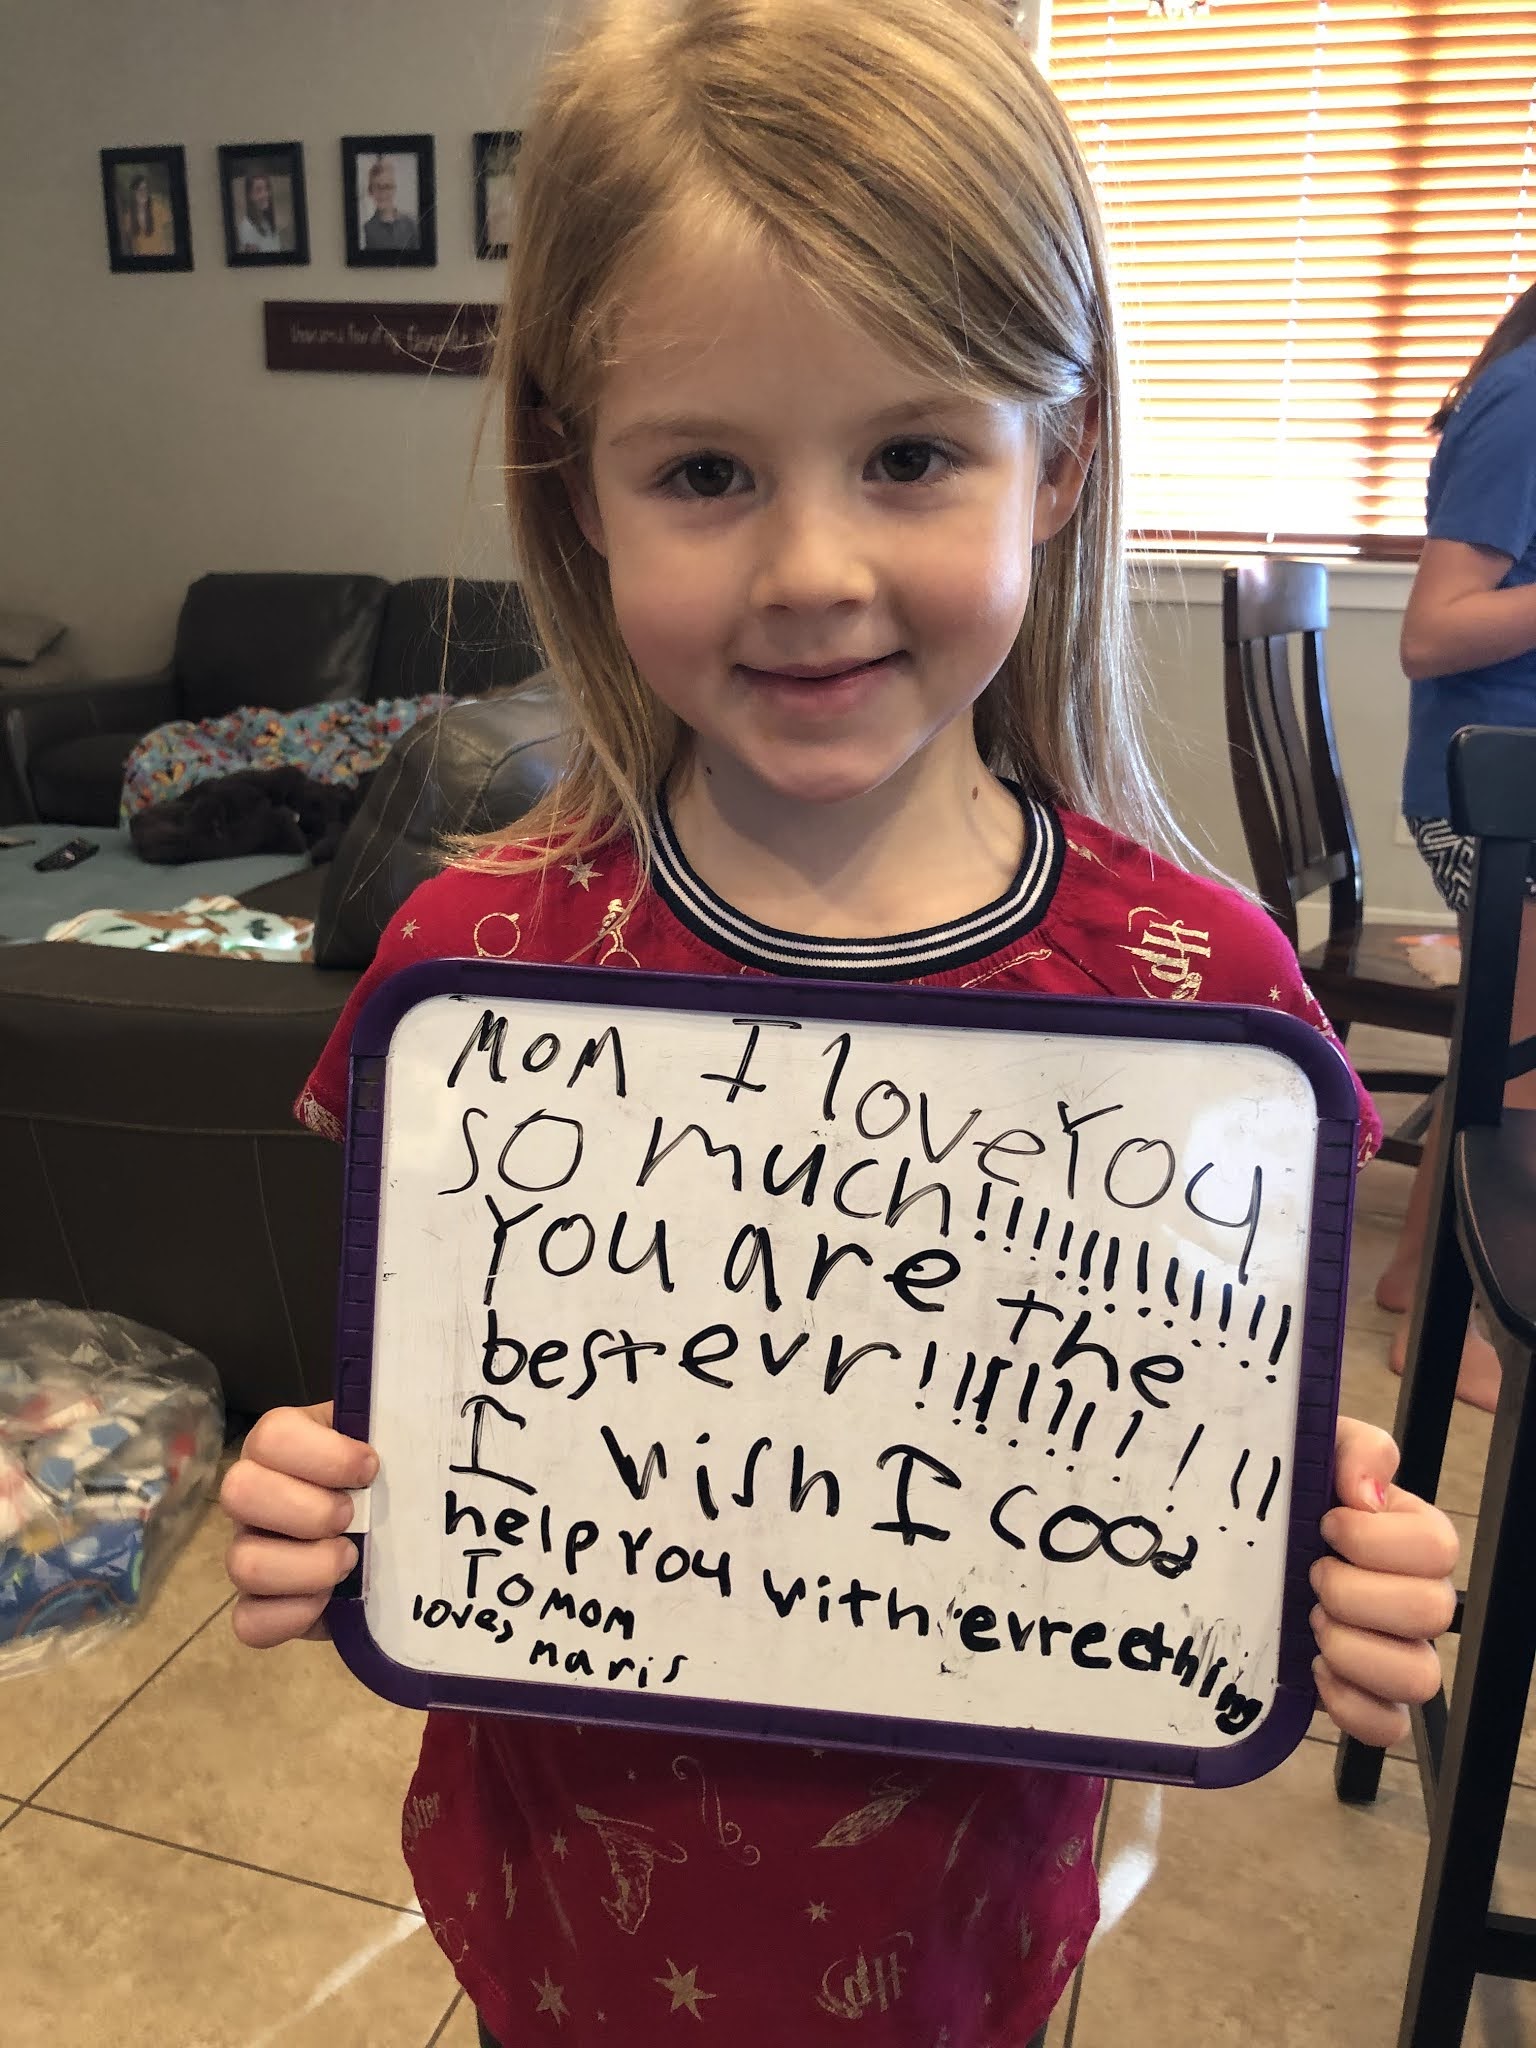 Mom I love You
so much!!!!!!!!!!!!
You are the
best evr!!!!!!!!!!!!
I wish I cood
help You with evreething
To Mom
love,
maris
HP
HP